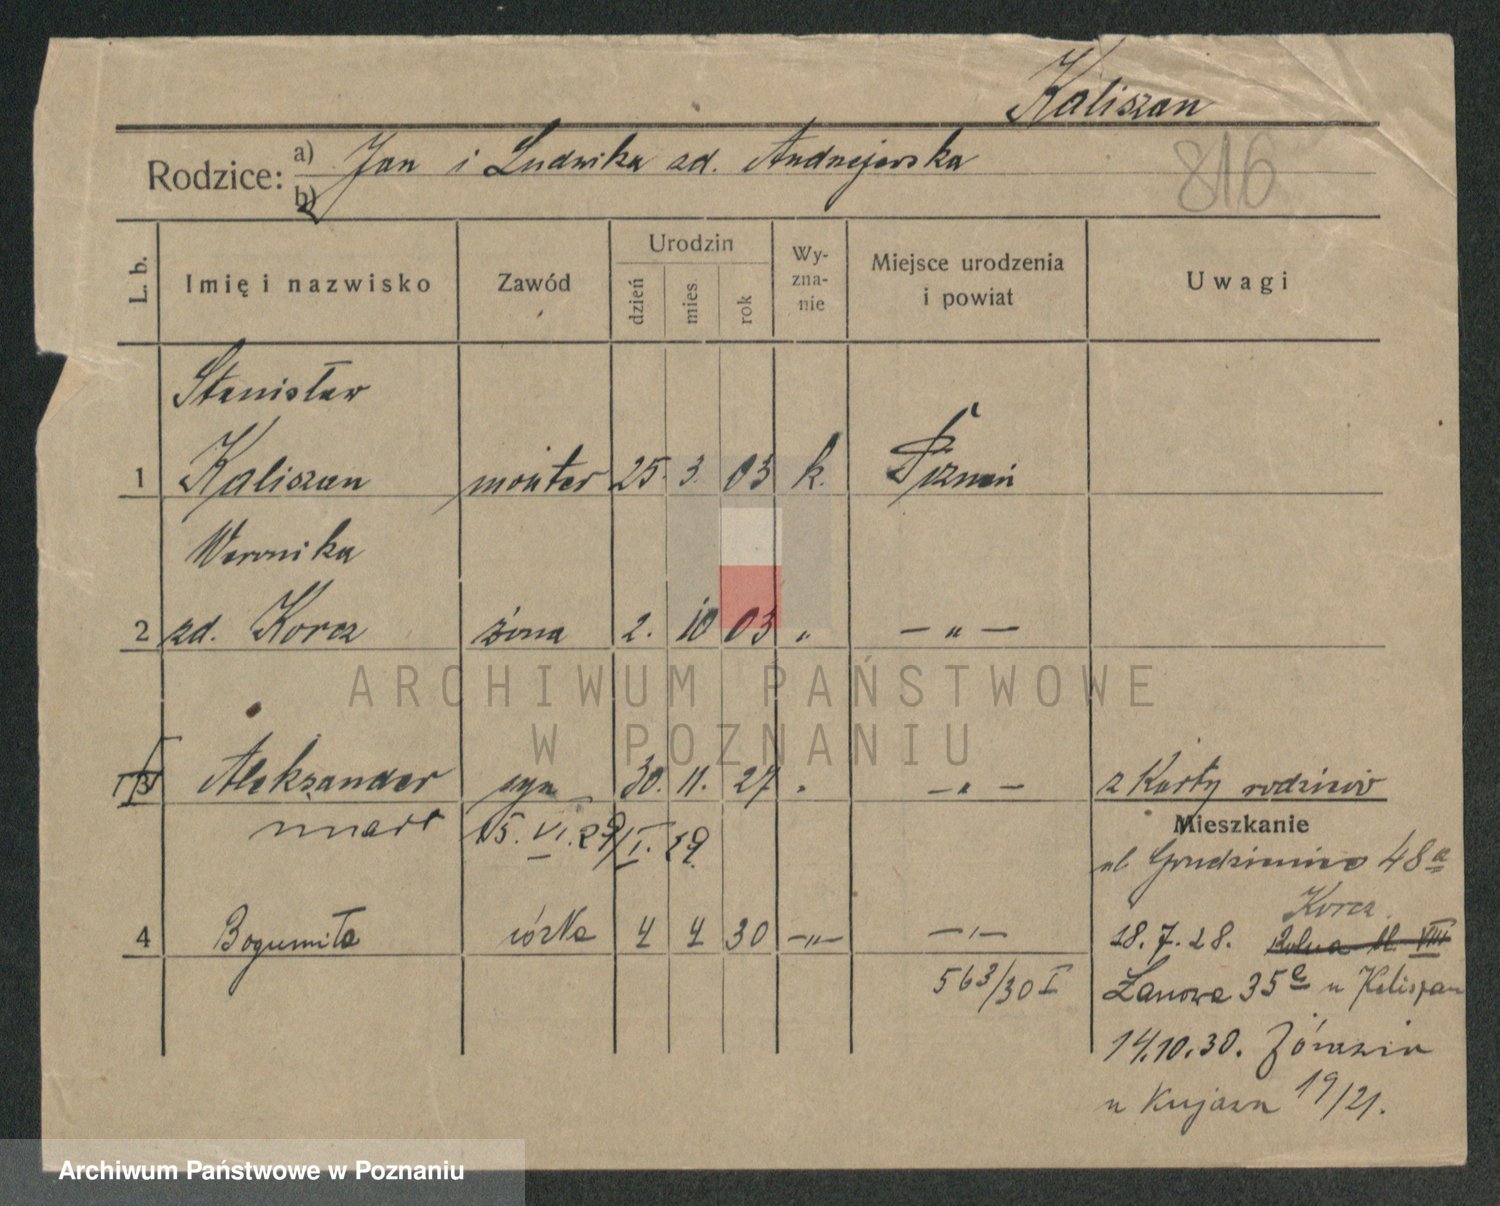 Kaliszan
816
Rodzice: a) Jan i Ludwika zd. Andrzejewska
b)
L. b. Imię i nazwisko Zawód Urodzin dzień mies. rok Wy-zna-nie Miejsce urodzenia i powiat Uwagi
Stanisław
1 Kaliszan monter 25. 3. 03 k. Poznań
Weronika
2 zd. Korcz żona 2. 10 03 „ — „ —
ARCHIWUM PAŃSTWOWE
W POZNANIU
3 Aleksander syn 30. 11. 27 „ — „ — z Karty rodziców
Mieszkanie
zmarł 15. VI. 29/I. 29. ul. Grudzieniec 48a
Korcz
4 Bogumiła córka 4 4 30 — „ — — „ — 18. 7. 28.
563/30 I Łanowa 35a u Kaliszan
14.10.30. Żórawia
u Kujawa 19/21.
Archiwum Państwowe w Poznaniu